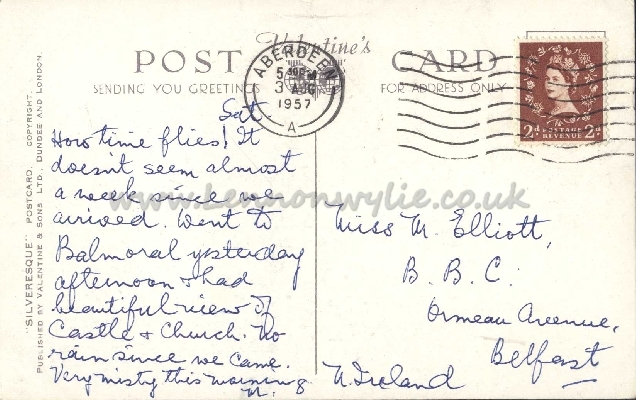 Valentine's
POST CARD
SENDING YOU GREETINGS
FOR ADDRESS ONLY
ABERDEEN
3 AUG
1957
A
2d POSTAGE 2d
REVENUE
"SILVERESQUE" POSTCARD. COPYRIGHT.
PUBLISHED BY VALENTINE & SONS LTD., DUNDEE AND LONDON.
Sat
How time flies! It
doesn't seem almost
a week since we
arrived. Went to
Balmoral yesterday
afternoon & had
beautiful view of
Castle & Church. No
rain since we came.
Very misty this morning
M.
Miss M. Elliott,
B. B. C.
Ormeau Avenue,
Belfast
N. Ireland
www.Lennonwylie.co.uk